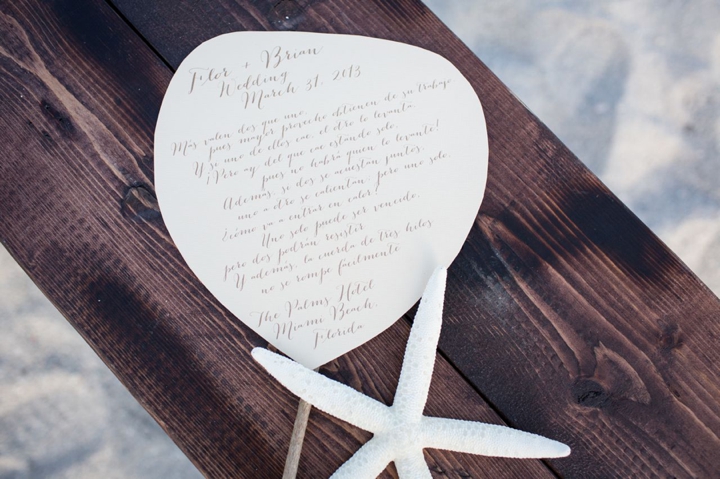 Flor + Brian
Wedding
March 31, 2013
Más valen dos que uno,
pues mayor provecho obtienen de su trabajo
Y si uno de ellos cae, el otro lo levanta.
¡Pero ay del que cae estando solo,
pues no habrá quien lo levante!
Además, si dos se acuestan juntos,
uno a otro se calientan; pero uno solo,
¿cómo va a entrar en calor?
Uno solo puede ser vencido,
pero dos podrán resistir.
Y además, la cuerda de tres hilos
no se rompe fácilmente
The Palms Hotel
Miami Beach,
Florida